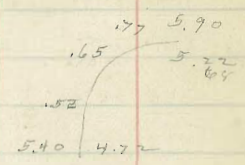 .77 5.90
.65 5.22
.52
5.40 4.72